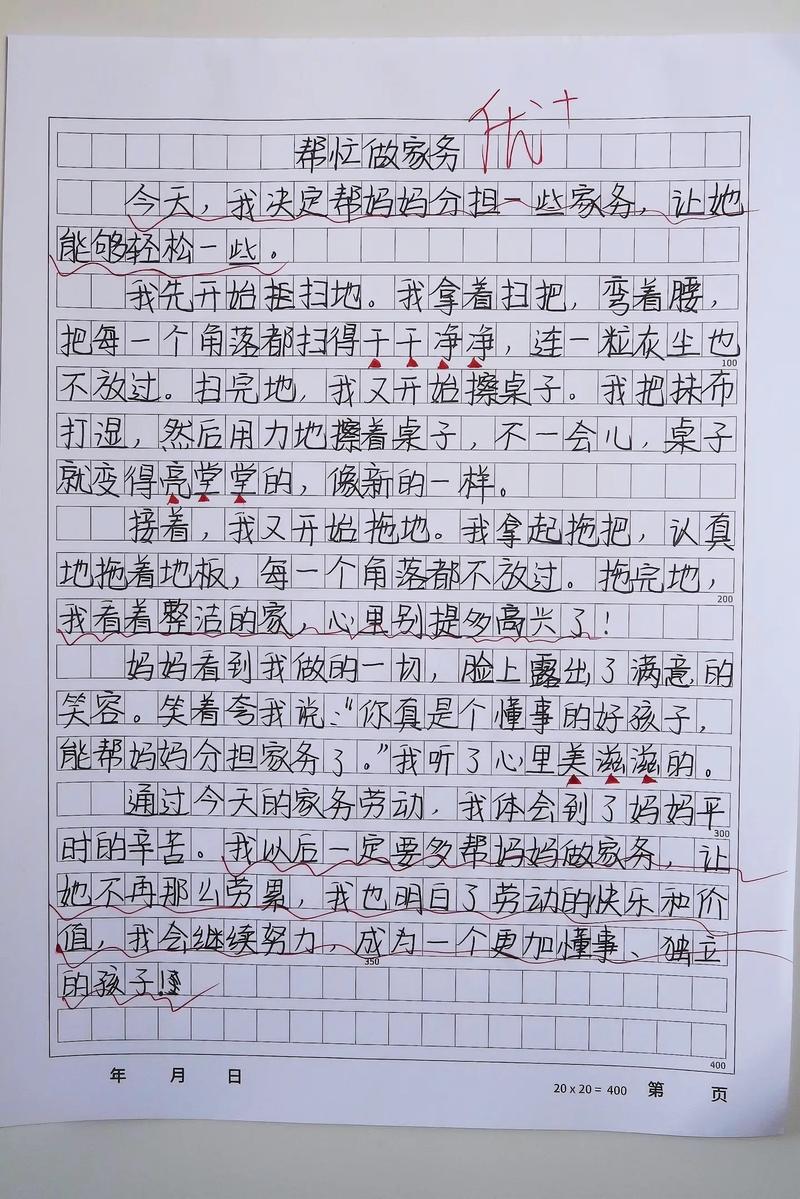 优+
帮忙做家务
今天，我决定帮妈妈分担一些家务，让她
能够轻松一些。
我先开始扫地。我拿着扫把，弯着腰，
把每一个角落都扫得干干净净，连一粒灰尘也
100
不放过。扫完地，我又开始擦桌子。我把抹布
打湿，然后用力地擦着桌子，不一会儿，桌子
就变得亮堂堂的，像新的一样。
接着，我又开始拖地。我拿起拖把，认真
地拖着地板，每一个角落都不放过。拖完地，
200
我看着整洁的家，心里别提多高兴了！
妈妈看到我做的一切，脸上露出了满意的
笑容。笑着夸我说：“你真是个懂事的好孩子，
能帮妈妈分担家务了。”我听了心里美滋滋的。
通过今天的家务劳动，我体会到了妈妈平
300
时的辛苦。我以后一定要多帮妈妈做家务，让
她不再那么劳累，我也明白了劳动的快乐和价
值，我会继续努力，成为一个更加懂事、独立
350
的孩子！
400
年 月 日 20 x 20 = 400 第 页